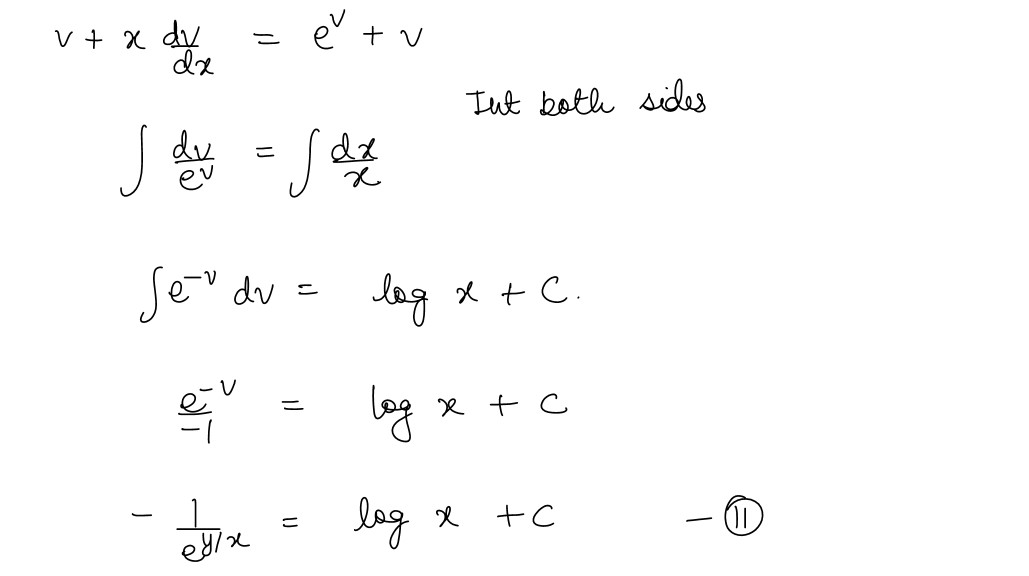 v + x dv/dx = e^v + v
Int both sides
∫ dv/e^v = ∫ dx/x
∫ e^-v dv = log x + C.
e^-v/-1 = log x + C
- 1/e^y/x = log x + C - (II)